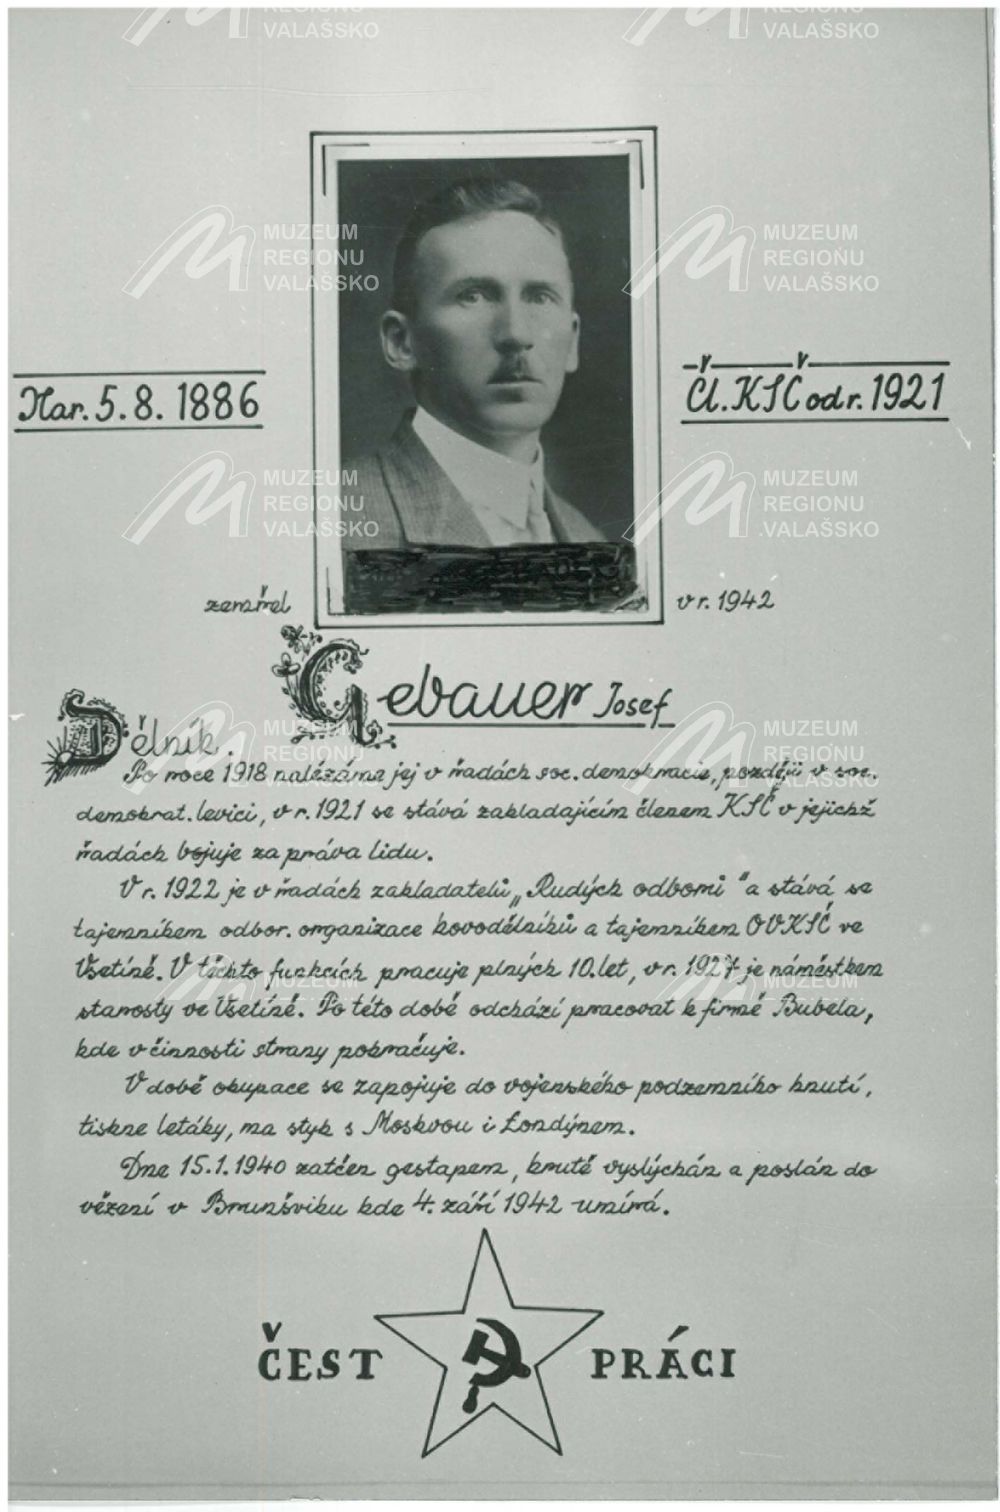 MUZEUM
REGIONU
VALAŠSKO
Nar. 5. 8. 1886
Čl. KSČ od r. 1921
zemřel
v r. 1942
Gebauer Josef
Dělník.
Po roce 1918 nalézáme jej v řadách soc. demokracie, později v soc.
demokrat. levici, v r. 1921 se stává zakladajícím členem KSČ v jejichž
řadách bojuje za práva lidu.
V r. 1922 je v řadách zakladatelů „Rudých odborů" a stává se
tajemníkem odbor. organizace kovodělníků a tajemníkem OVKSČ ve
Vsetíně. V těchto funkcích pracuje plných 10. let, v r. 1927 je náměstkem
starosty ve Vsetíně. Po této době odchází pracovat k firmě Bubela,
kde v činnosti strany pokračuje.
V době okupace se zapojuje do vojenského podzemního hnutí,
tiskne letáky, má styk s Moskvou i Londýnem.
Dne 15. 1. 1940 zatčen gestapem, krutě vyslýchán a poslán do
vězení v Brunšviku kde 4. září 1942 umírá.
ČEST PRÁCI